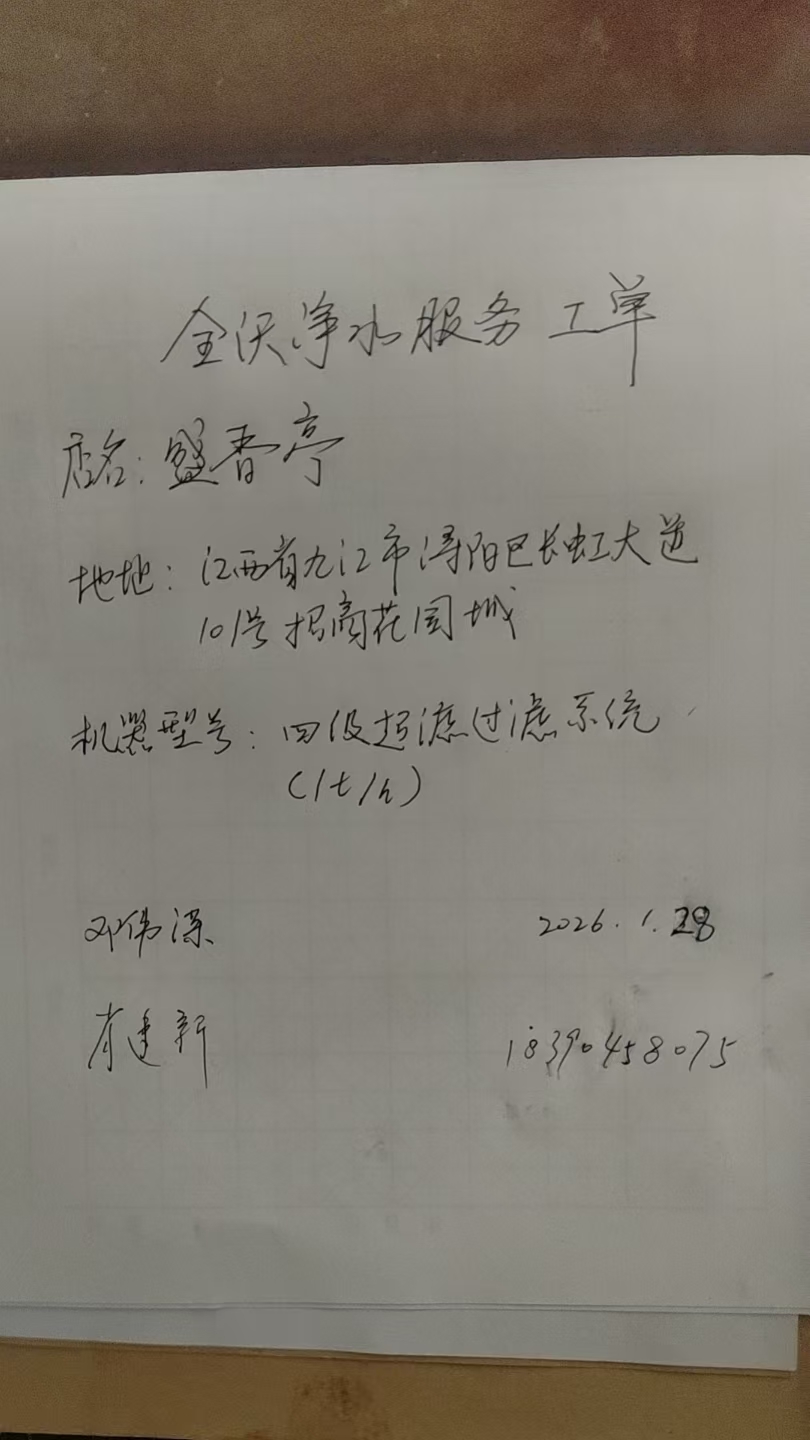 全沃净水服务工单
店名：盛香亭
地地：江西省九江市浔阳区长虹大道
101号招商花园城
机器型号：四级超滤过滤系统
（1t/h）
邓伟深 2026.1.28
肖建新 18390458075